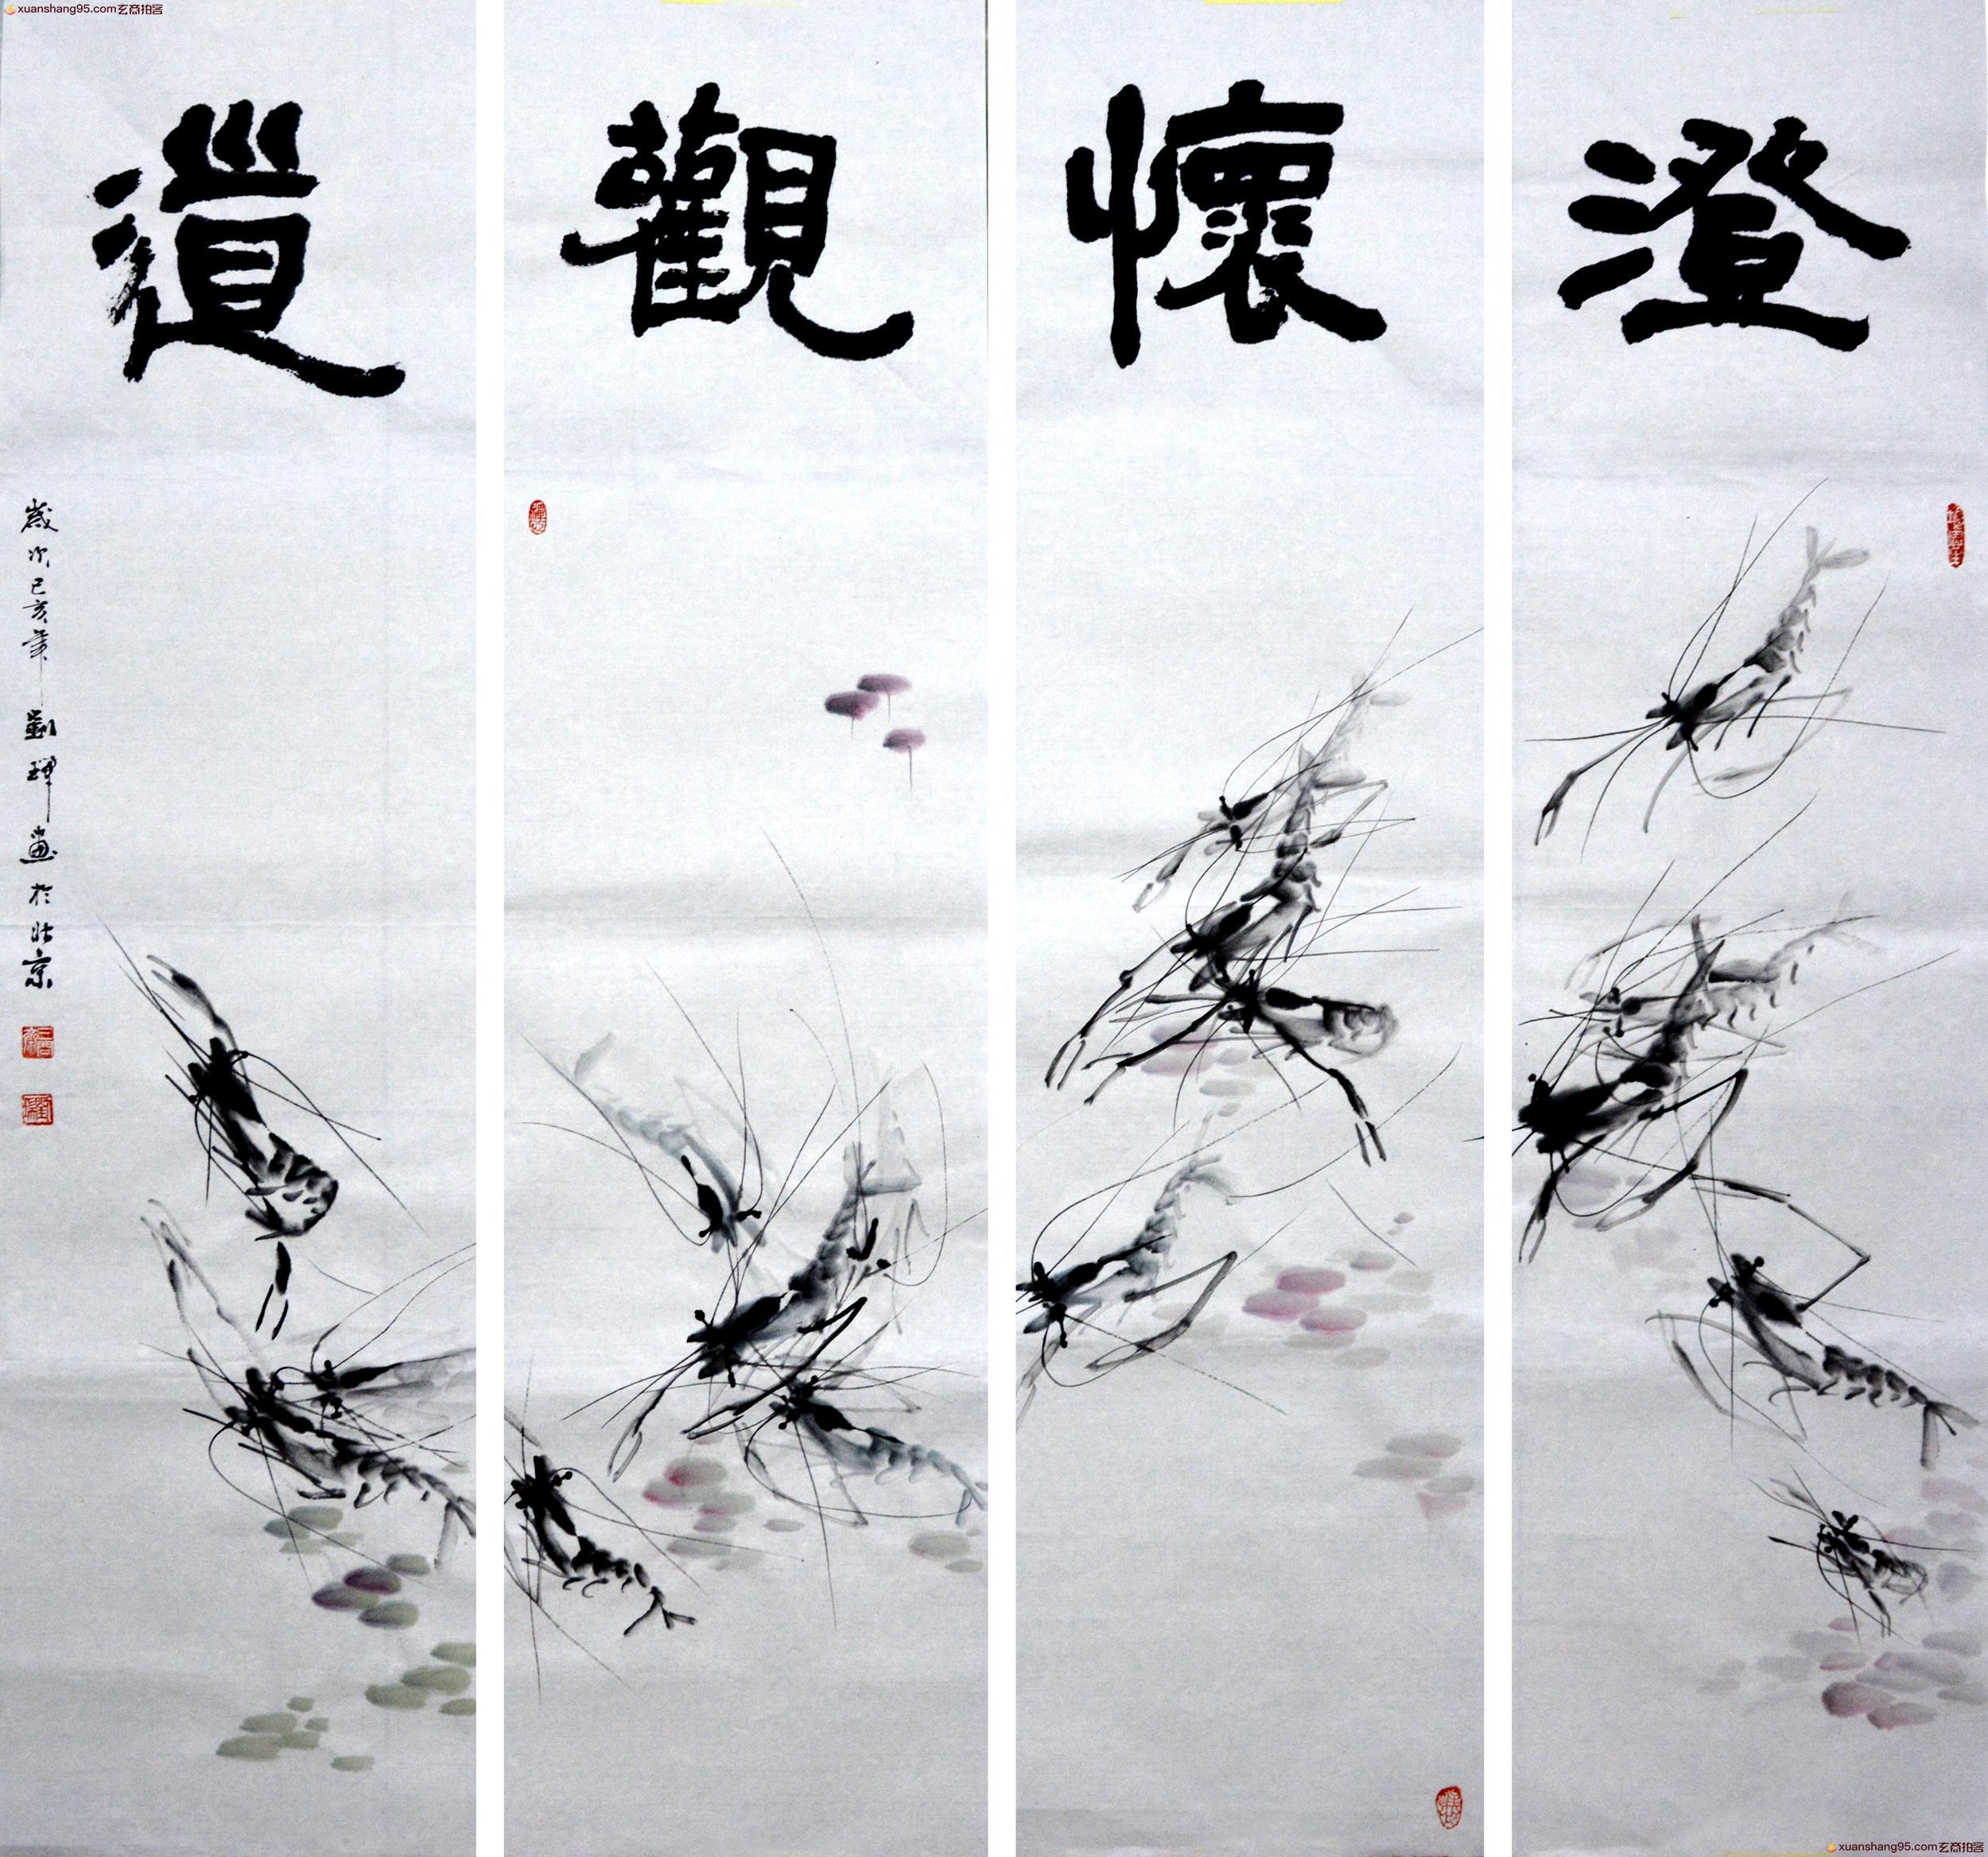 xuanshang95.com玄商拍客
澄
懷
觀
道
歲次己亥年劉琿畫於北京
xuanshang95.com玄商拍客